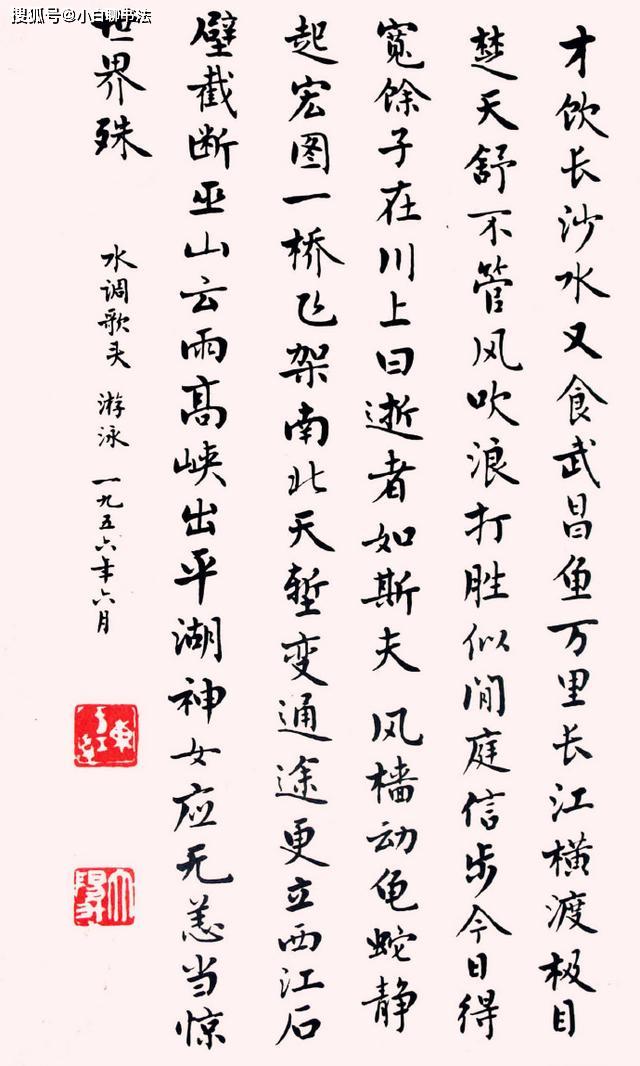 搜狐号@小白聊书法
才饮长沙水又食武昌鱼万里长江横渡极目
楚天舒不管风吹浪打胜似閒庭信步今日得
寬餘子在川上曰逝者如斯夫 风樯动龟蛇静
起宏图一桥飞架南北天堑变通途更立西江石
壁截断巫山云雨高峡出平湖神女应无恙当惊
世界殊
水调歌头 游泳 一九五六年六月